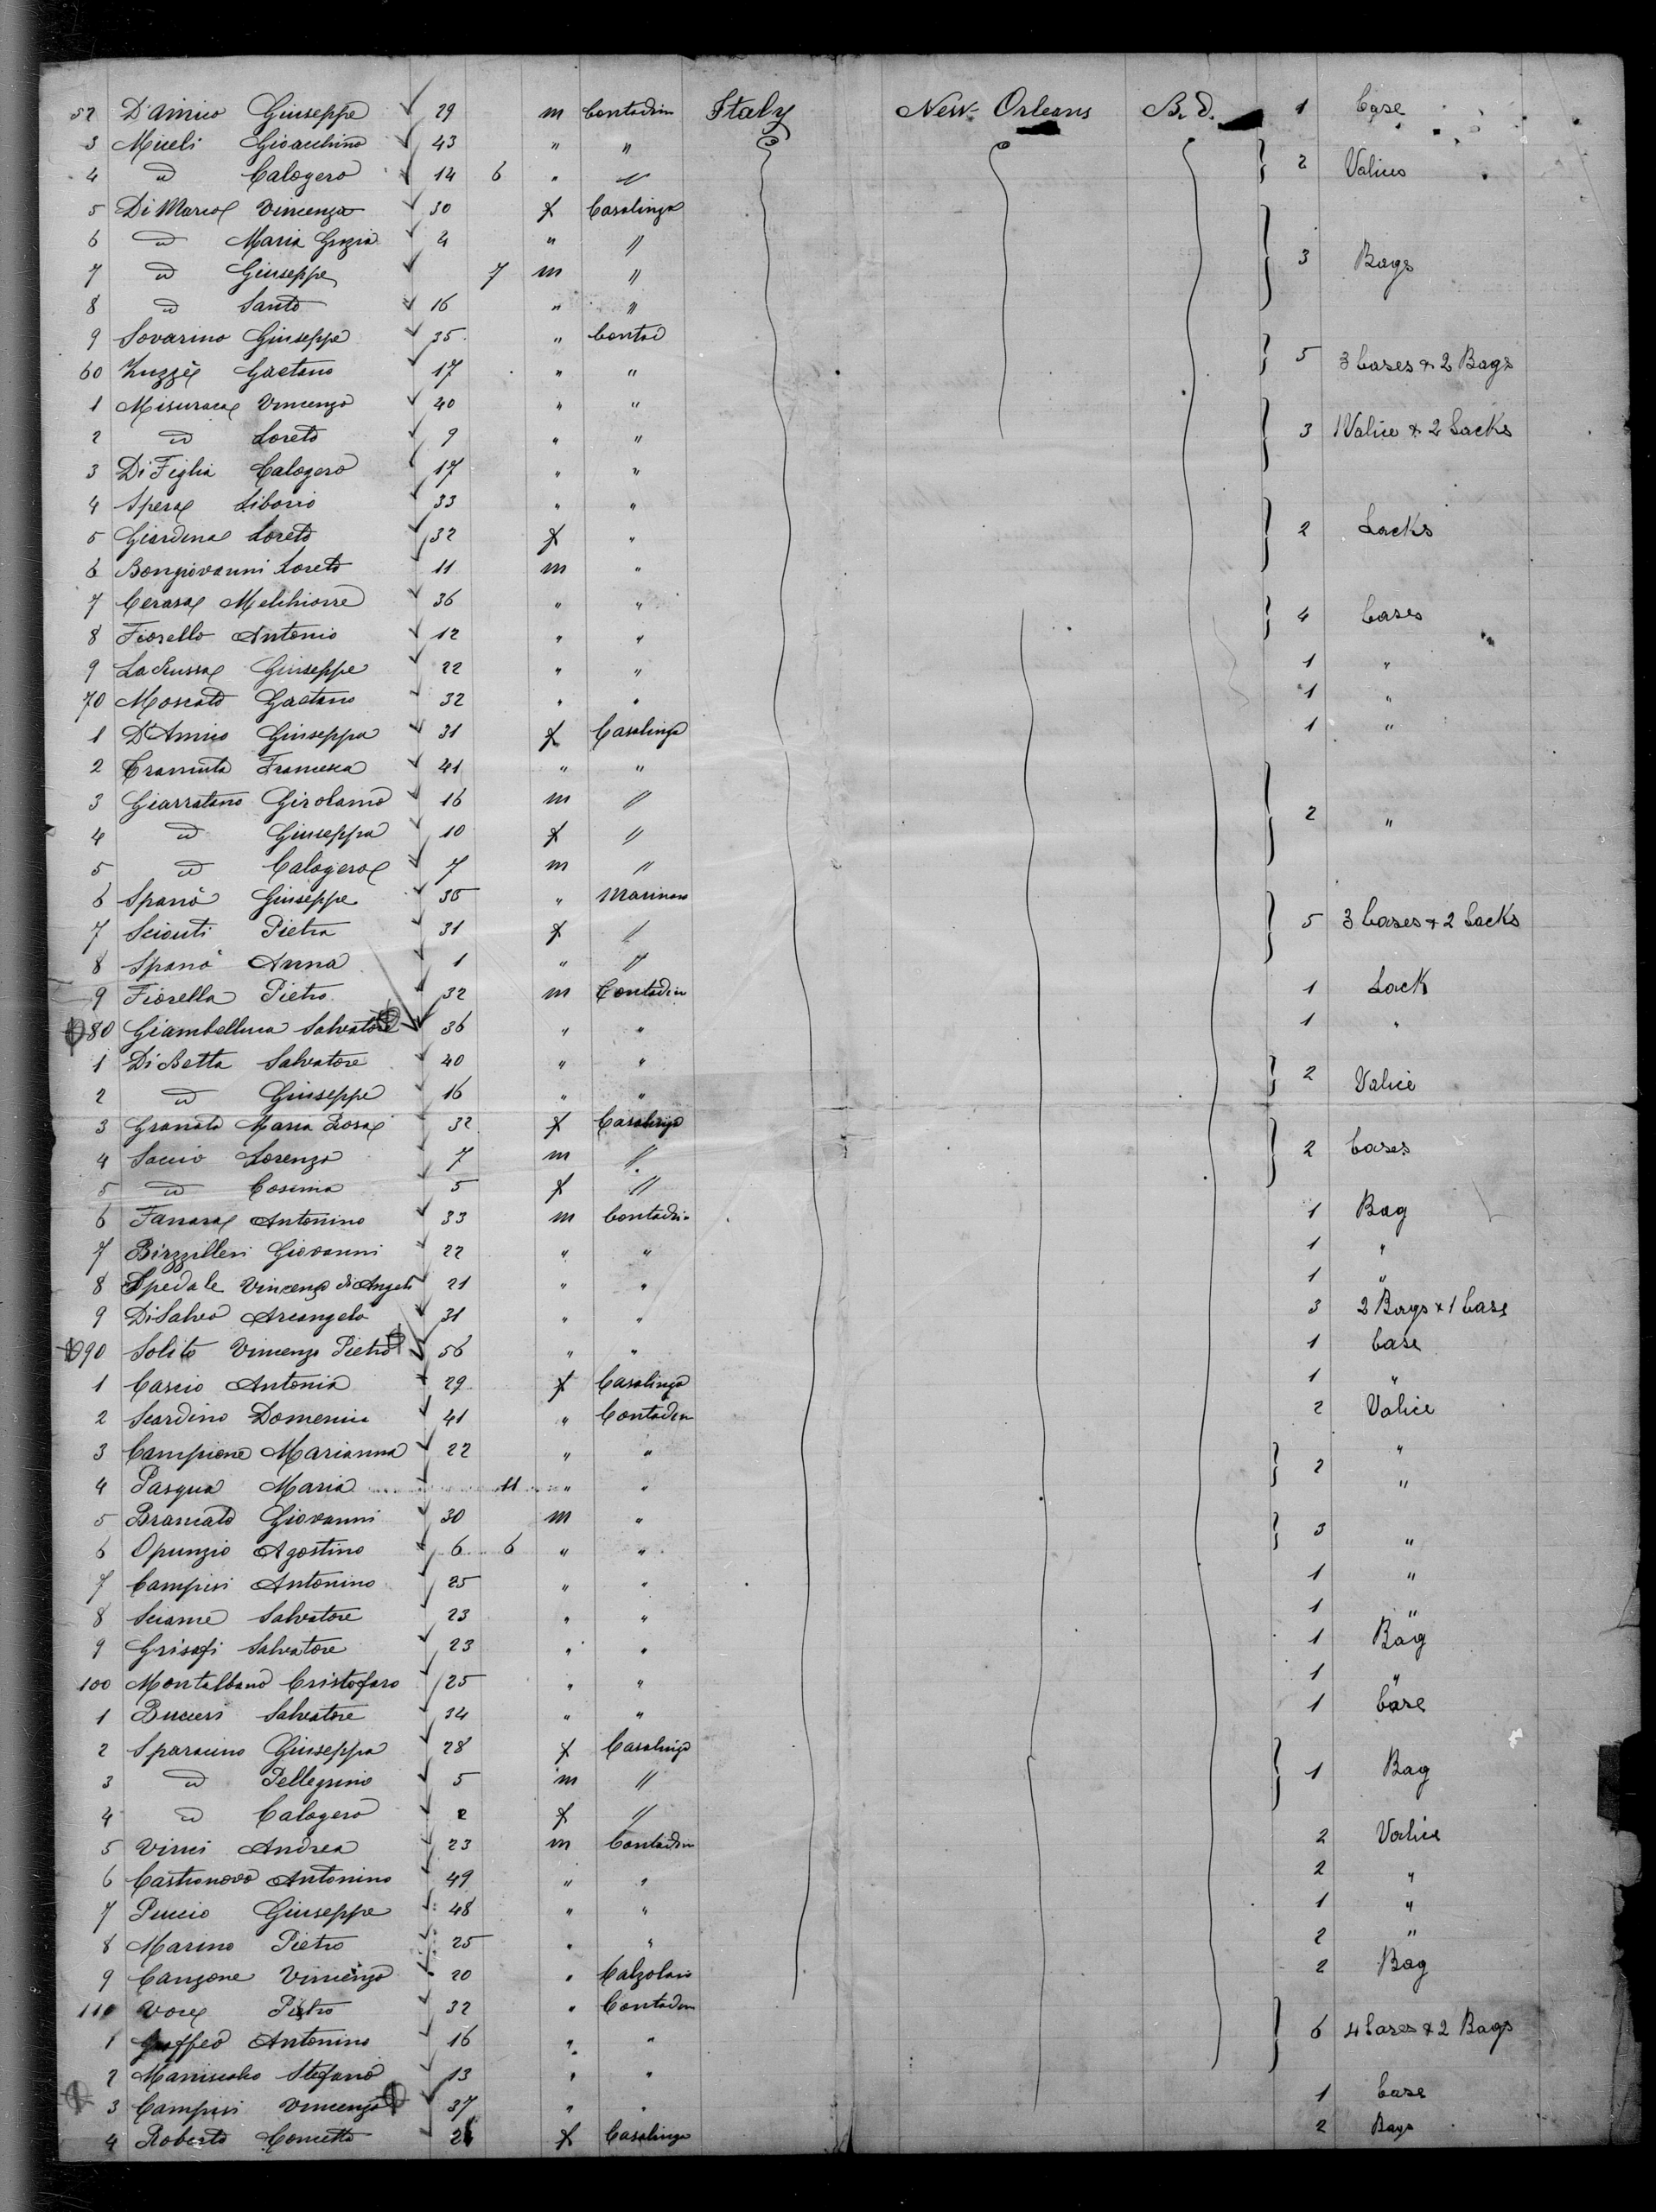 52 D'Amico Giuseppe 29 m Contadin Italy New-Orleans B.d. 1 Case
3 Miceli Gioacchino 43 " "
4 id Calogero 14 6 " " 2 Valices
5 Di Marco Vincenza 30 f Casalinga
6 id Maria Grazia 4 " "
7 id Giuseppe 7 m " 3 Bags
8 id Santo 16 " "
9 Sovarino Giuseppe 35 " Contad
60 Zuzzè Gaetano 17 " " 5 3 Cases & 2 Bags
1 Misuraca Vincenzo 40 " "
2 id Loreto 9 " " 3 1 Valice & 2 Sacks
3 Di Figlia Calogero 17 " "
4 Spera Liborio 33 " "
5 Giardina Loreto 32 f " 2 Sacks
6 Bongiovanni Loreto 11 m "
7 Cerasa Melchiorre 36 " "
8 Fiorello Antonio 12 " " 4 Cases
9 LaRussa Giuseppe 22 " " 1 "
70 Moscato Gaetano 32 " " 1 "
1 D'Amico Giuseppa 31 f Casalinga 1 "
2 Tramuta Francesca 41 " "
3 Giarratano Girolamo 16 m "
4 id Giuseppa 10 f " 2 "
5 id Calogero 7 m "
6 Spanò Giuseppe 35 " Marinaro
7 Sciouti Pietra 31 f " 5 3 Cases & 2 Sacks
8 Spanò Anna 1 " "
9 Fiorella Pietro 32 m Contadin 1 Sack
80 Giambelluca Salvatore 36 " " 1 "
1 Di Betta Salvatore 40 " "
2 id Giuseppe 16 " " 2 Valice
3 Granata Maria Rosa 32 f Casalinga
4 Saccio Lorenzo 7 m " 2 Cases
5 id Cosima 5 f "
6 Farrara Antonino 33 m Contadin 1 Bag
7 Birzzilleri Giovanni 22 " " 1 "
8 Spedale Vincenzo di Angelo 21 " " 1 "
9 DiSalvo Arcangelo 31 " " 3 2 Bags & 1 Case
90 Solito Vincenzo Pietro 56 " " 1 Case
1 Cascio Antonia 29 f Casalinga 1 "
2 Scardino Domenica 41 " Contadin 2 Valice
3 Campione Marianna 22 " " "
4 Pasqua Maria 11 " " 2 "
5 Brancato Giovanni 30 m "
6 Opunzio Agostino 6 6 " " 3 "
7 Campisi Antonino 25 " " 1 "
8 Sciame Salvatore 23 " " 1 "
9 Grisafi Salvatore 23 " " 1 Bag
100 Montalbano Cristofaro 25 " " 1 "
1 Bucceri Salvatore 34 " " 1 Case
2 Sparacino Giuseppa 28 f Casalinga
3 id Pellegrino 5 m " 1 Bag
4 id Calogero 2 f "
5 Vinci Andrea 23 m Contadin 2 Valice
6 Castronovo Antonino 49 " " 2 "
7 Puccio Giuseppe 48 " " 1 "
8 Marino Pietro 25 " " 2 "
9 Canzone Vincenzo 20 " Calzolaio 2 Bag
110 Vore Pietro 32 " Contadin
1 Graffeo Antonino 16 " " 6 4 Cases & 2 Bags
2 Maniscalco Stefano 13 " "
3 Campisi Vincenzo 37 " " 1 Case
4 Roberto Concetta f Casalinga 2 Bags